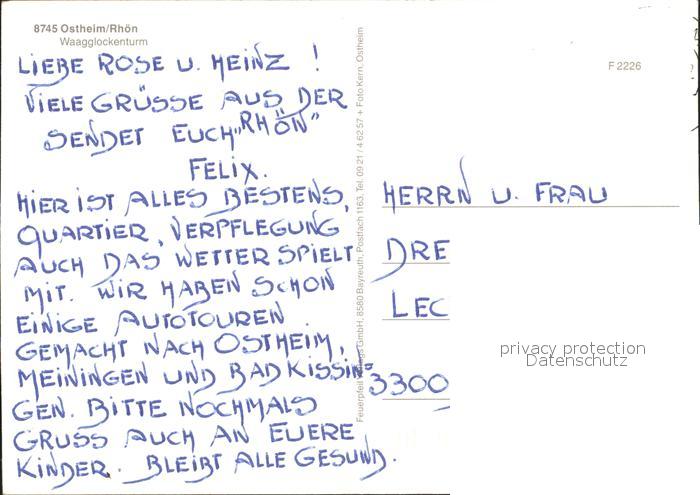 8745 Ostheim/Rhön
Waagglockenturm
LIEBE ROSE U. HEINZ !
VIELE GRÜSSE AUS DER
SENDET EUCH „RHÖN“
FELIX.
HIER IST ALLES BESTENS,
QUARTIER, VERPFLEGUNG
AUCH DAS WETTER SPIELT
MIT. WIR HABEN SCHON
EINIGE AUTOTOUREN
GEMACHT NACH OSTHEIM,
MEININGEN UND BAD KISSIN=
GEN. BITTE NOCHMALS
GRUSS AUCH AN EUERE
KINDER. BLEIBT ALLE GESUND.
Feuerpfeil Verlags GmbH, 8580 Bayreuth, Postfach 1163, Tel. 09 21 / 4 62 57 + Foto Kern, Ostheim
F 2226
HERRN U. FRAU
DRE
LEC
3300
privacy protection
Datenschutz